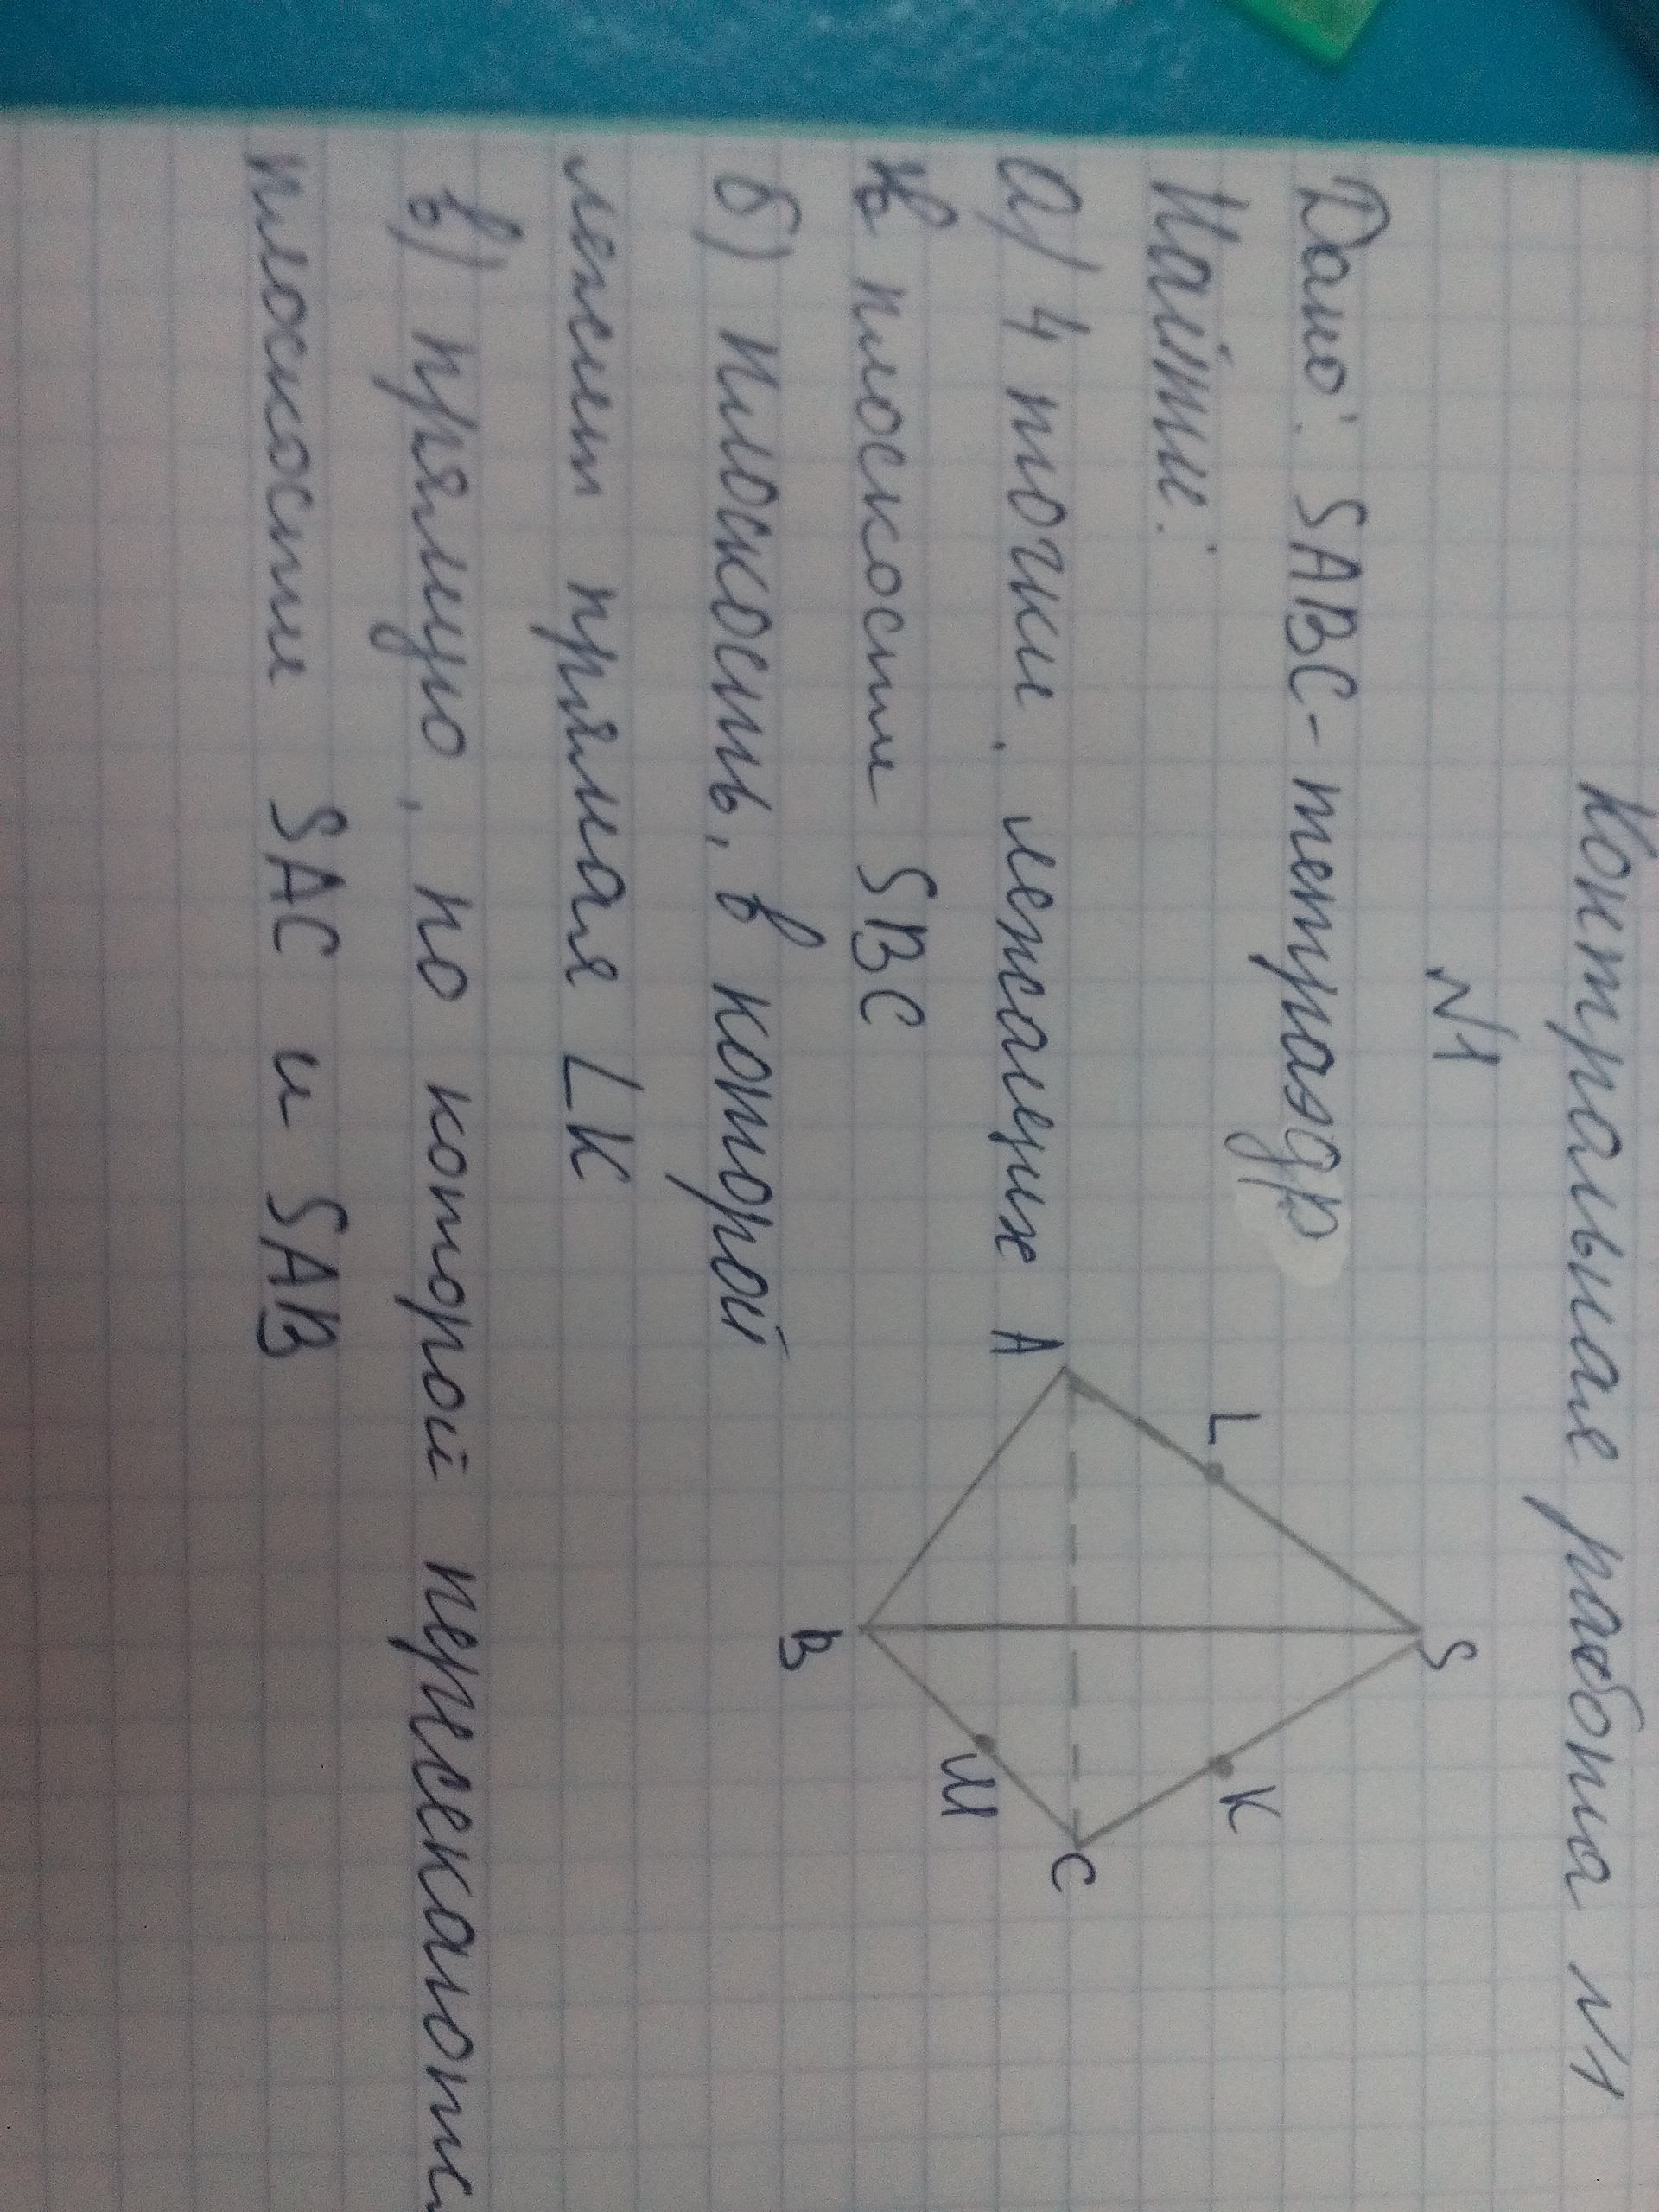 Контрольная работа №1
№1
Дано: SABC - тетраэдр
Найти:
а) 4 точки, лежащих
в плоскости SBC
б) плоскость, в которой
лежит прямая LK
в) прямую, по которой пересекаютс
плоскости SAC и SAB
S
L
K
A
C
M
B